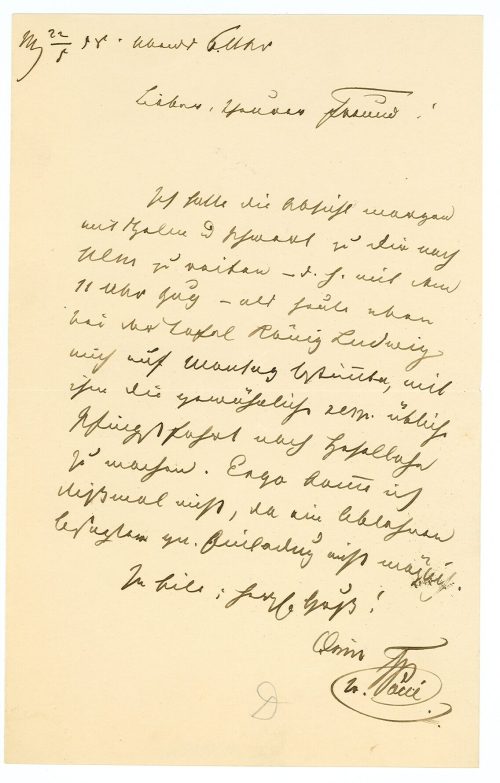 M 22/5 58. Abends 6 Uhr
Lieber, theurer Freund!
Ich hatte die Absicht morgen
mit & Schwart zu Dir nach
Ulm zu reiten – d. h. mit dem
11 Uhr Zug – als heute eben
bei der Tafel König Ludwig
mich auf Montag bestimte, mit
ihm die gewöhnliche resp. übliche
Pfingstfahrt nach Hesellohe
zu machen. Ergo kome ich
dißmal nicht, da ein Ablehnen
besagter gn. Einladug nicht möglich.
In Eile; herzl. Gruß!
Dein
v.